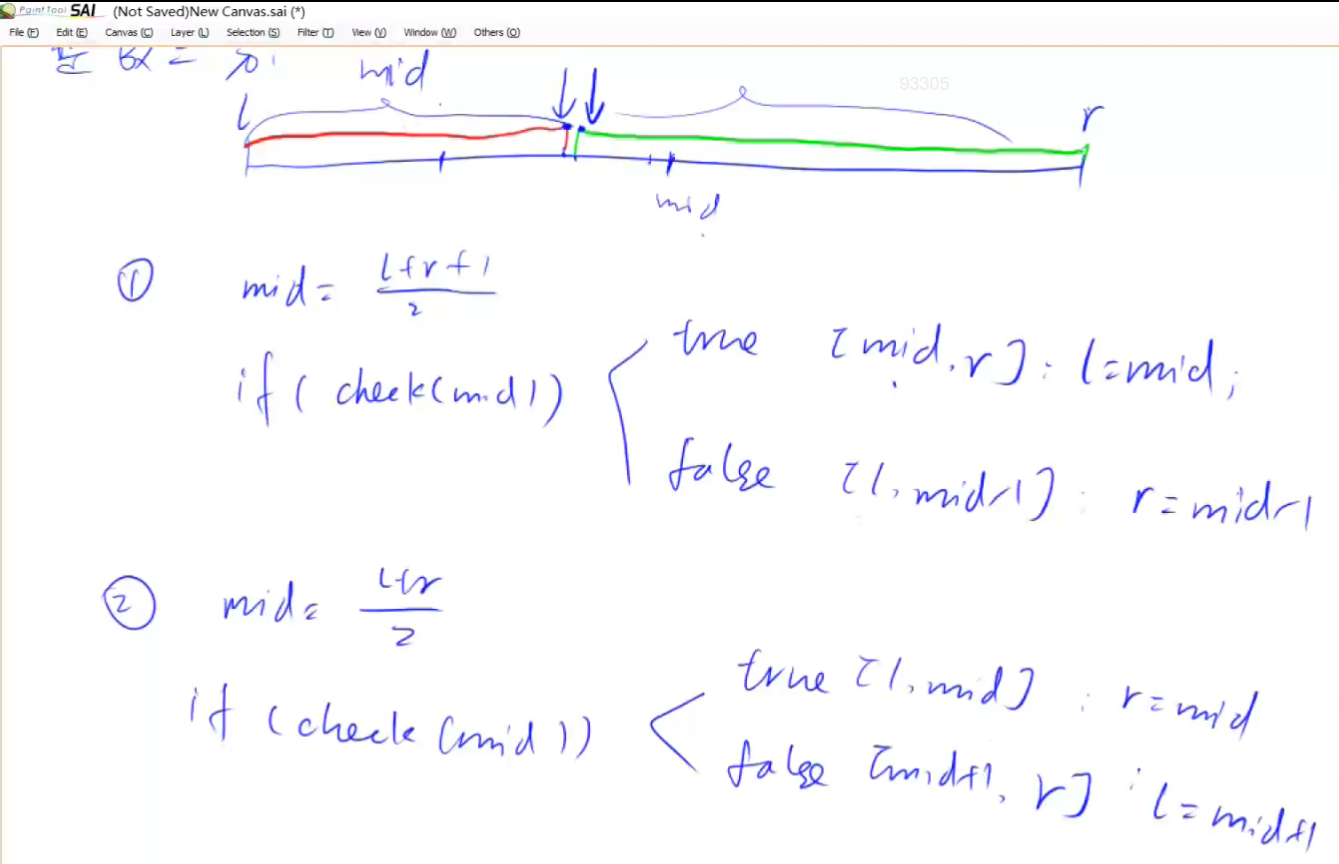 PaintTool SAI (Not Saved)New Canvas.sai (*)
File (F) Edit (E) Canvas (C) Layer (L) Selection (S) Filter (T) View (V) Window (W) Others (O)
mid
93305
l r
mid
① mid = (l+r+1)/2
if ( check(mid)) true [mid, r] : l=mid;
false [l, mid-1] : r=mid-1
② mid = (l+r)/2
if (check (mid)) true [l, mid] : r=mid
false [mid+1, r] : l=mid+1